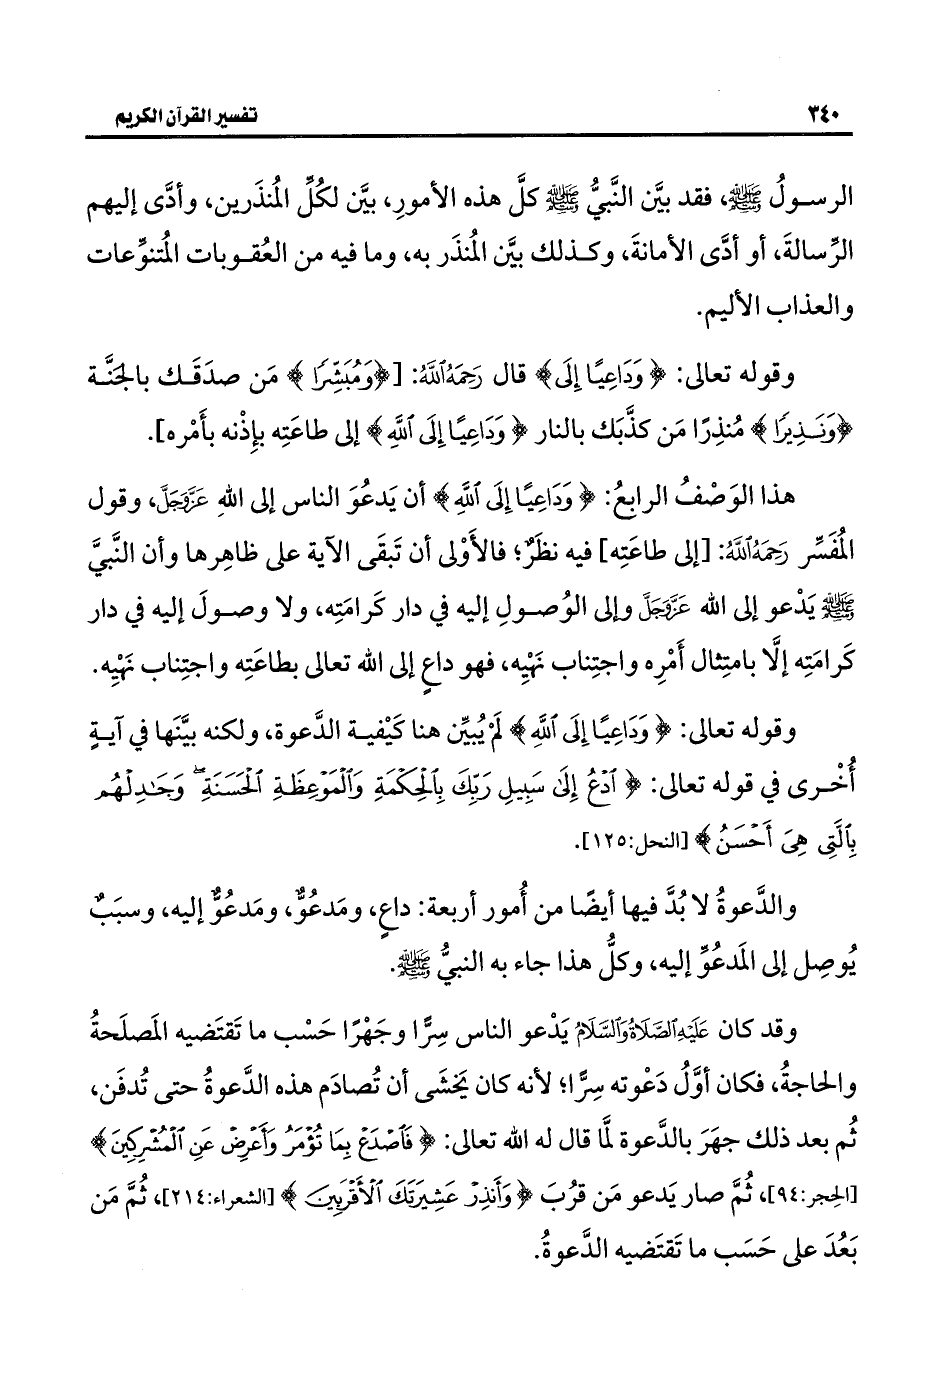 ٣٤٠ تفسير القرآن الكريم
الرسولُ ﷺ، فقد بيَّن النَّبيُّ ﷺ كلَّ هذه الأمورِ، بيَّن لكُلِّ المُنذَرين، وأدَّى إليهم
الرِّسالةَ، أو أدَّى الأمانةَ، وكذلك بيَّن المُنذَر به، وما فيه من العُقوبات المُتنوِّعات
والعذاب الأليم.
وقوله تعالى: ﴿وَدَاعِيًا إِلَى﴾ قال رَحِمَهُ ٱللَّهُ: [﴿وَمُبَشِّرًا﴾ مَن صدَقَك بالجَنَّة
﴿وَنَذِيرًا﴾ مُنذِرًا مَن كذَّبَك بالنار ﴿وَدَاعِيًا إِلَى ٱللَّهِ﴾ إلى طاعَتِه بإِذْنه بأَمْره].
هذا الوَصْفُ الرابعُ: ﴿وَدَاعِيًا إِلَى ٱللَّهِ﴾ أن يَدعُوَ الناس إلى اللهِ عَزَّوَجَلَّ، وقول
المُفَسِّر رَحِمَهُ ٱللَّهُ: [إلى طاعَتِه] فيه نظَرٌ؛ فالأَوْلى أن تَبقَى الآية على ظاهِرها وأن النَّبيَّ
ﷺ يَدْعو إلى الله عَزَّوَجَلَّ وإلى الوُصولِ إليه في دار كَرامَتِه، ولا وصولَ إليه في دار
كَرامَتِه إلَّا بامتِثال أَمْرِه واجتِناب نَهْيِه، فهو داعٍ إلى الله تعالى بطاعَتِه واجتِناب نَهْيِه.
وقوله تعالى: ﴿وَدَاعِيًا إِلَى ٱللَّهِ﴾ لَمْ يُبيِّن هنا كَيْفية الدَّعوة، ولكنه بيَّنَها في آيةٍ
أُخْرى في قوله تعالى: ﴿ٱدْعُ إِلَىٰ سَبِيلِ رَبِّكَ بِٱلْحِكْمَةِ وَٱلْمَوْعِظَةِ ٱلْحَسَنَةِۖ وَجَـٰدِلْهُم
بِٱلَّتِى هِىَ أَحْسَنُ﴾ [النحل:١٢٥].
والدَّعوةُ لا بُدَّ فيها أيضًا من أُمور أربعة: داعٍ، ومَدعُوٌّ، ومَدعُوٌّ إليه، وسبَبٌ
يُوصِل إلى المَدعُوِّ إليه، وكلُّ هذا جاء به النبيُّ ﷺ.
وقد كان عَلَيْهِ ٱلصَّلَاةُ وَٱلسَّلَامُ يَدْعو الناس سِرًّا وجَهْرًا حَسْب ما تَقتَضيه المَصلَحةُ
والحاجةُ، فكان أوَّلُ دَعْوته سِرًّا؛ لأنه كان يَخشَى أن تُصادَم هذه الدَّعوةُ حتى تُدفَن،
ثُم بعد ذلك جهَرَ بالدَّعوة لمَّا قال له الله تعالى: ﴿فَٱصْدَعْ بِمَا تُؤْمَرُ وَأَعْرِضْ عَنِ ٱلْمُشْرِكِينَ﴾
[الحجر:٩٤]، ثُمَّ صار يَدعو مَن قرُبَ ﴿وَأَنذِرْ عَشِيرَتَكَ ٱلْأَقْرَبِينَ﴾ [الشعراء:٢١٤]، ثُمَّ مَن
بَعُدَ على حَسَب ما تَقتَضيه الدَّعوةُ.